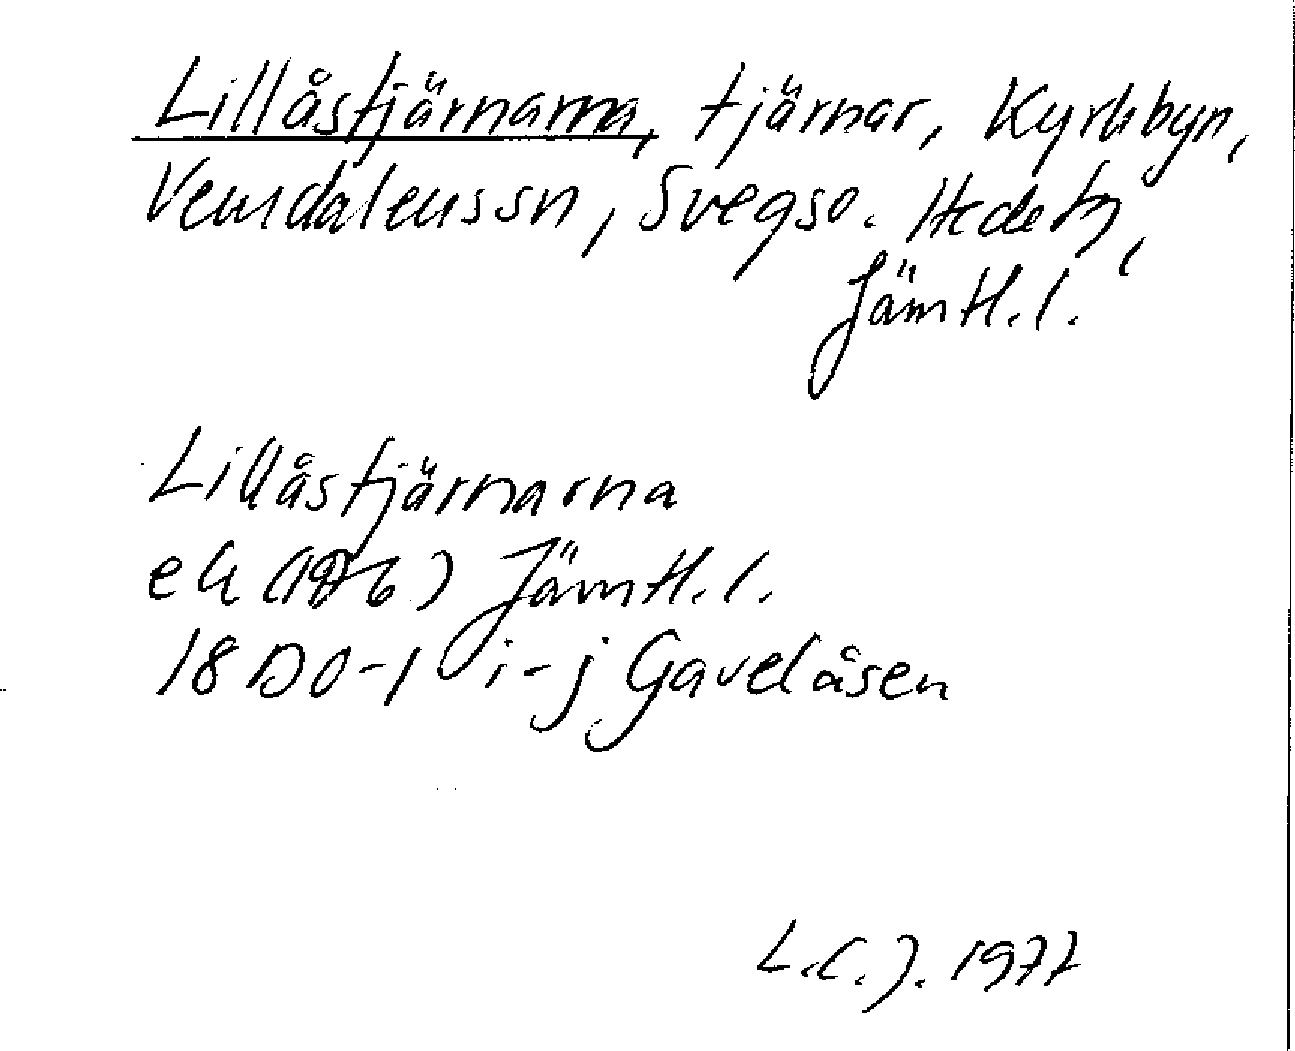 Lillåstjärnarna, tjärnar, Kyrkbyn,
Vemdalenssn, Svegso. Hedetg,
Jämtl.l.
Lillåstjärnarna
ek (1976) Jämtl.l.
18 D 0-1 i-j Gavelåsen
L.C.J. 1977